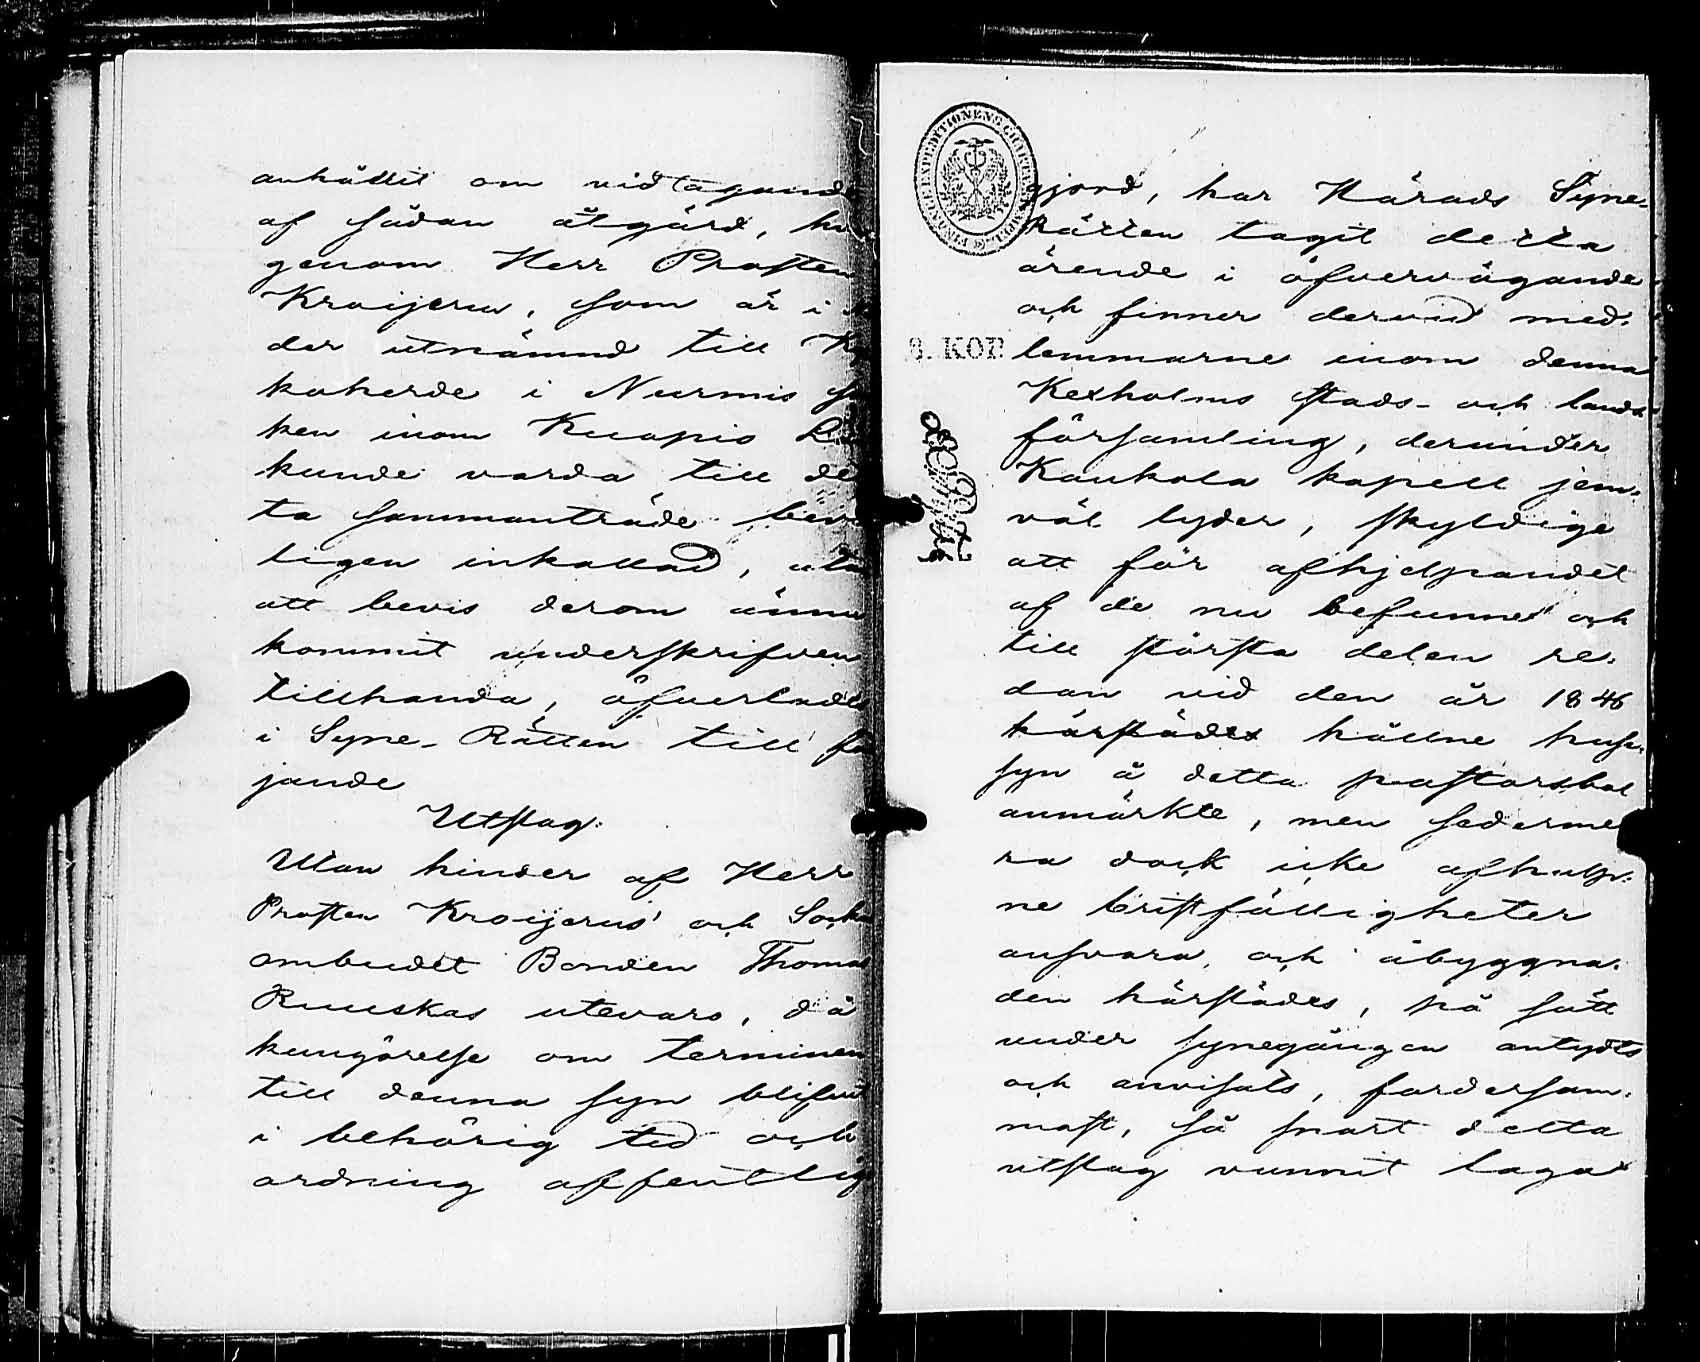 anhållit om vidtagande
af sådan åtgärd,
genom Herr Prosten
Kroijerus, som är i
der utnämnd till Ky
koherde i Nurmis
ken inom Kuopio
kunde varda till de
ta sammanträde
ligen inkallad, utan
att bevis derom ännu
kommit underskrifven
tillhanda, öfverlades
i Syne-Rätten till föl
jande
Utslag:
Utan hinder af Herr
Prosten Kroijerus' och Sockne
ombudet Bonden Thomas
Ruuskas utevaro, då
kungörelse om terminen
till denna syn blifvit
i behörig tid och
ordning offentlig
gjord, har Härads Syne-
Rätten tagit detta
ärende i öfvervägande
och finner dervid med-
3. KOP.
lemmarne inom denna
Kexholms stads- och lands
församling, derunder
Kaukola kapell jem-
väl lyder, skyldige
att för afhjelpandet
af de nu befunne och
till största delen re-
dan vid den år 1846
härstädes hållne huse-
syn å detta pastorsbol
anmärkte, men sederme
ra dock icke afhulp-
ne bristfälligheter
ansvara, och åbyggna-
den härstädes, på sätt
under synegången antydts
och anvisats, fordersam-
mast, så snart detta
utslag vunnit laga